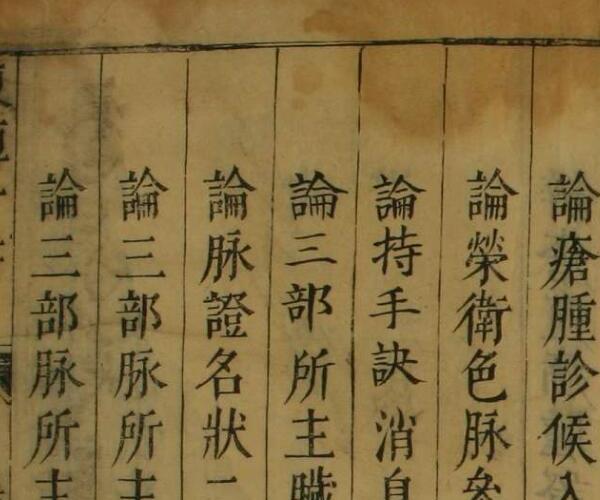 論瘡腫診候入
論榮衛色脉參
論持手訣消息
論三部所主臟
論脉證名狀二
論三部脉所主
論三部脉所主